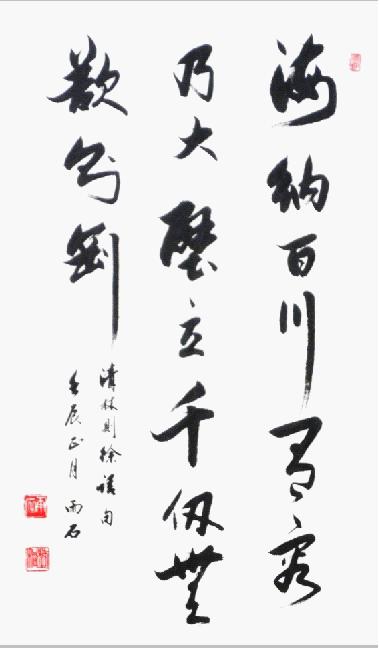 海納百川有容
乃大壁立千仞無
欲則剛
清林則徐句
壬辰正月雨石